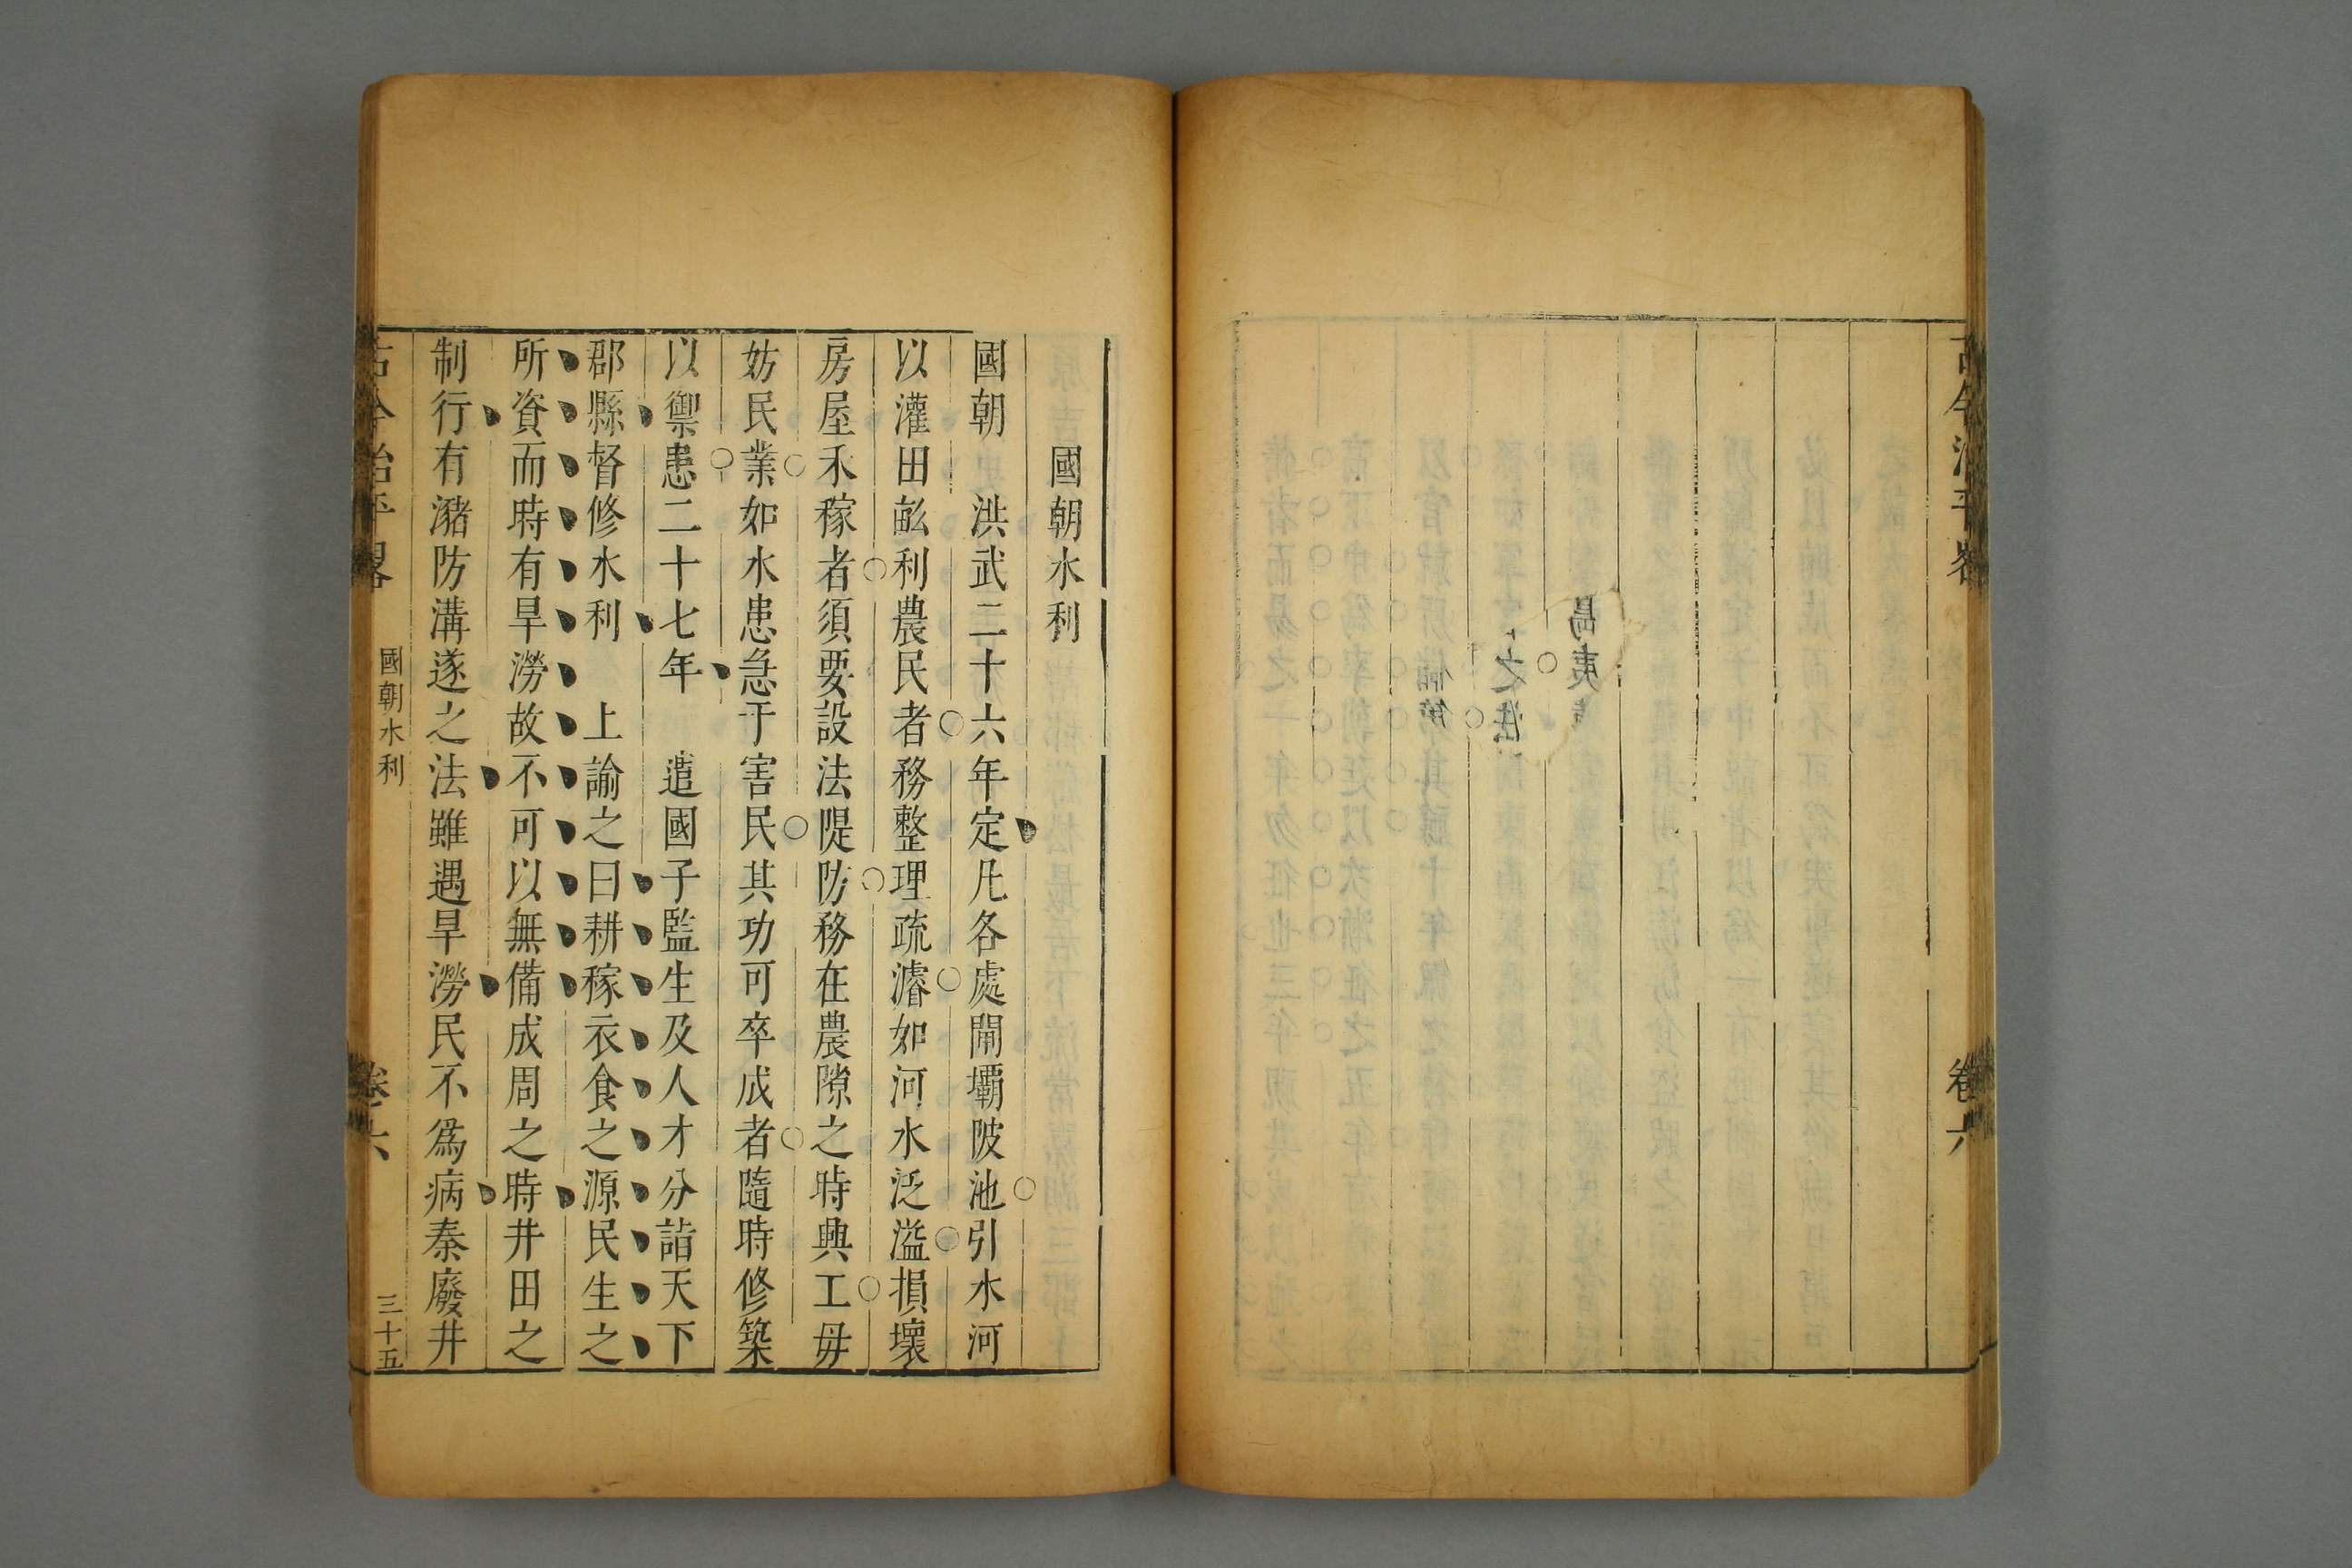 古今治平畧
卷六
國朝水利
國朝　洪武二十六年定凡各處閘壩陂池引水河
以灌田畝利農民者務整理疏濬如河水泛溢損壞
房屋禾稼者須要設法隄防務在農隙之時興工毋
妨民業如水患急于害民其功可卒成者隨時修築
以禦患二十七年　遣國子監生及人才分詣天下
郡縣督修水利　上諭之曰耕稼衣食之源民生之
所資而時有旱澇故不可以無備成周之時井田之
制行有瀦防溝遂之法雖遇旱澇民不爲病秦廢井
古今治平畧
國朝水利
卷六
三十五